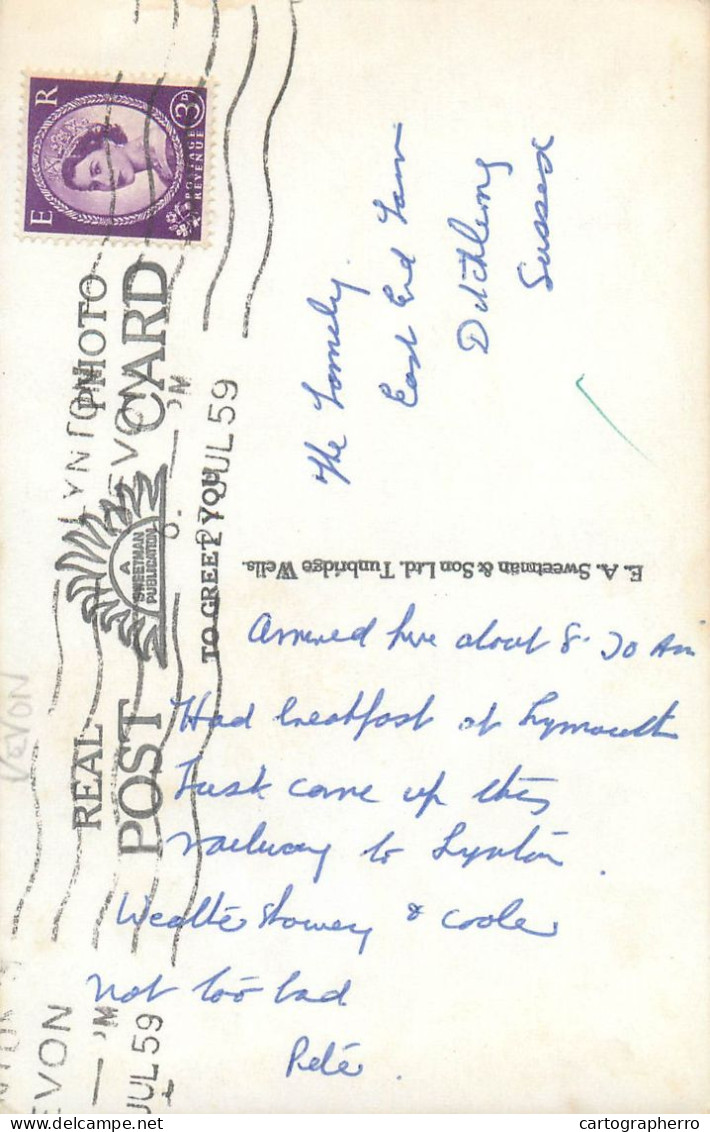 E R
3D
POSTAGE
REVENUE
REAL PHOTO
POST CARD
A
SWEETMAN
PUBLICATION
TO GREET YOU
LYNTON
DEVON
JUL 59
DEVON
DEVON
JUL 59
E. A. Sweetman & Son Ltd. Tunbridge Wells.
The
East End
Ditchling
Sussex
Arrived here about 8.30 Am
Had breakfast at Lynmouth
Just come up this
railway to Lynton.
Weather Showery & cooler
not too bad
Peter.
cartographerro